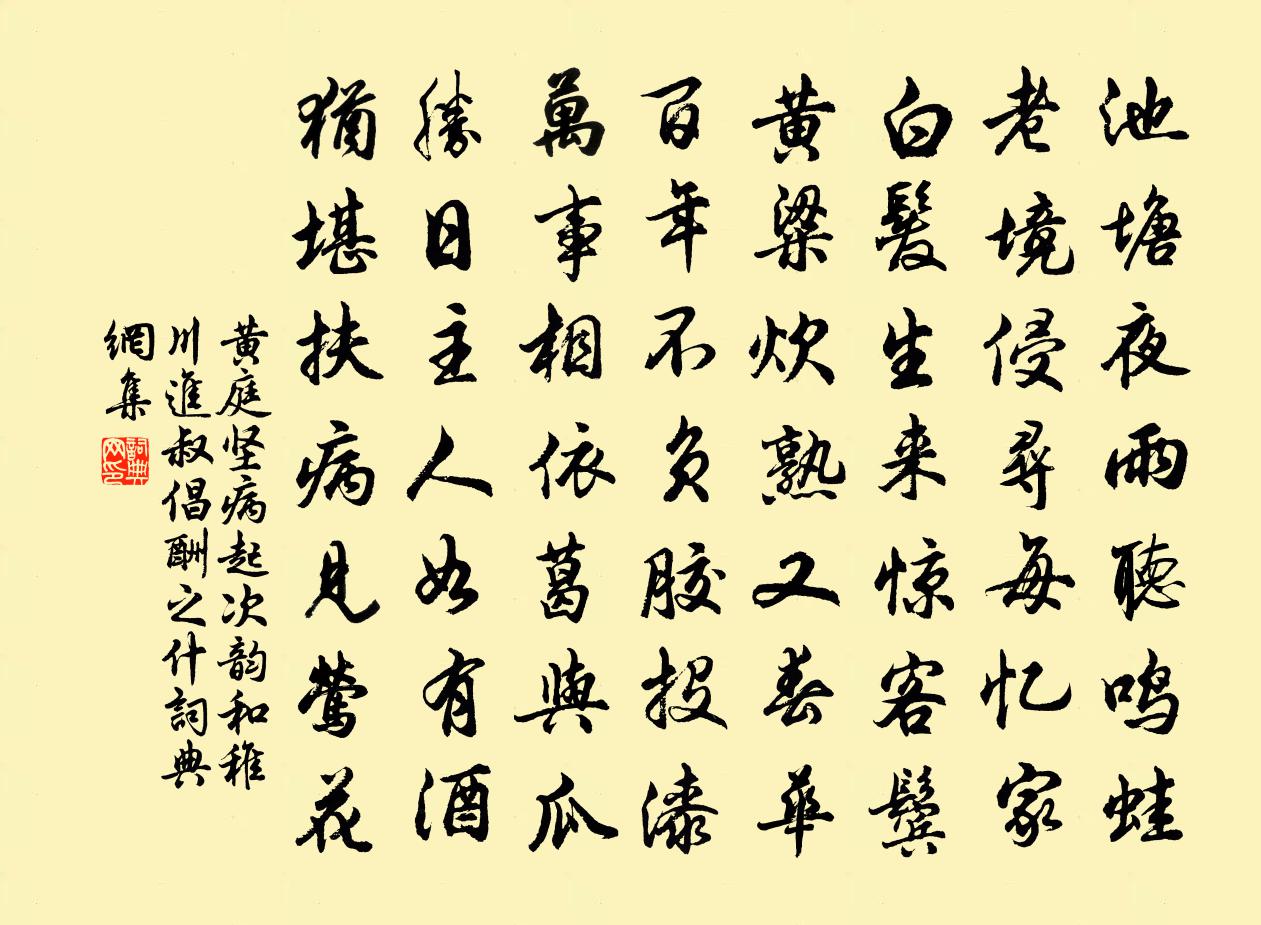 池塘夜雨聽鸣蛙
老境侵尋每忆家
白髮生来惊客鬓
黄粱炊熟又春華
百年不负胶投漆
萬事相依葛與瓜
勝日主人如有酒
猶堪扶病見莺花
黄庭坚病起次韵和稚
川進叔倡酬之什詞典
網集
詞典
网印